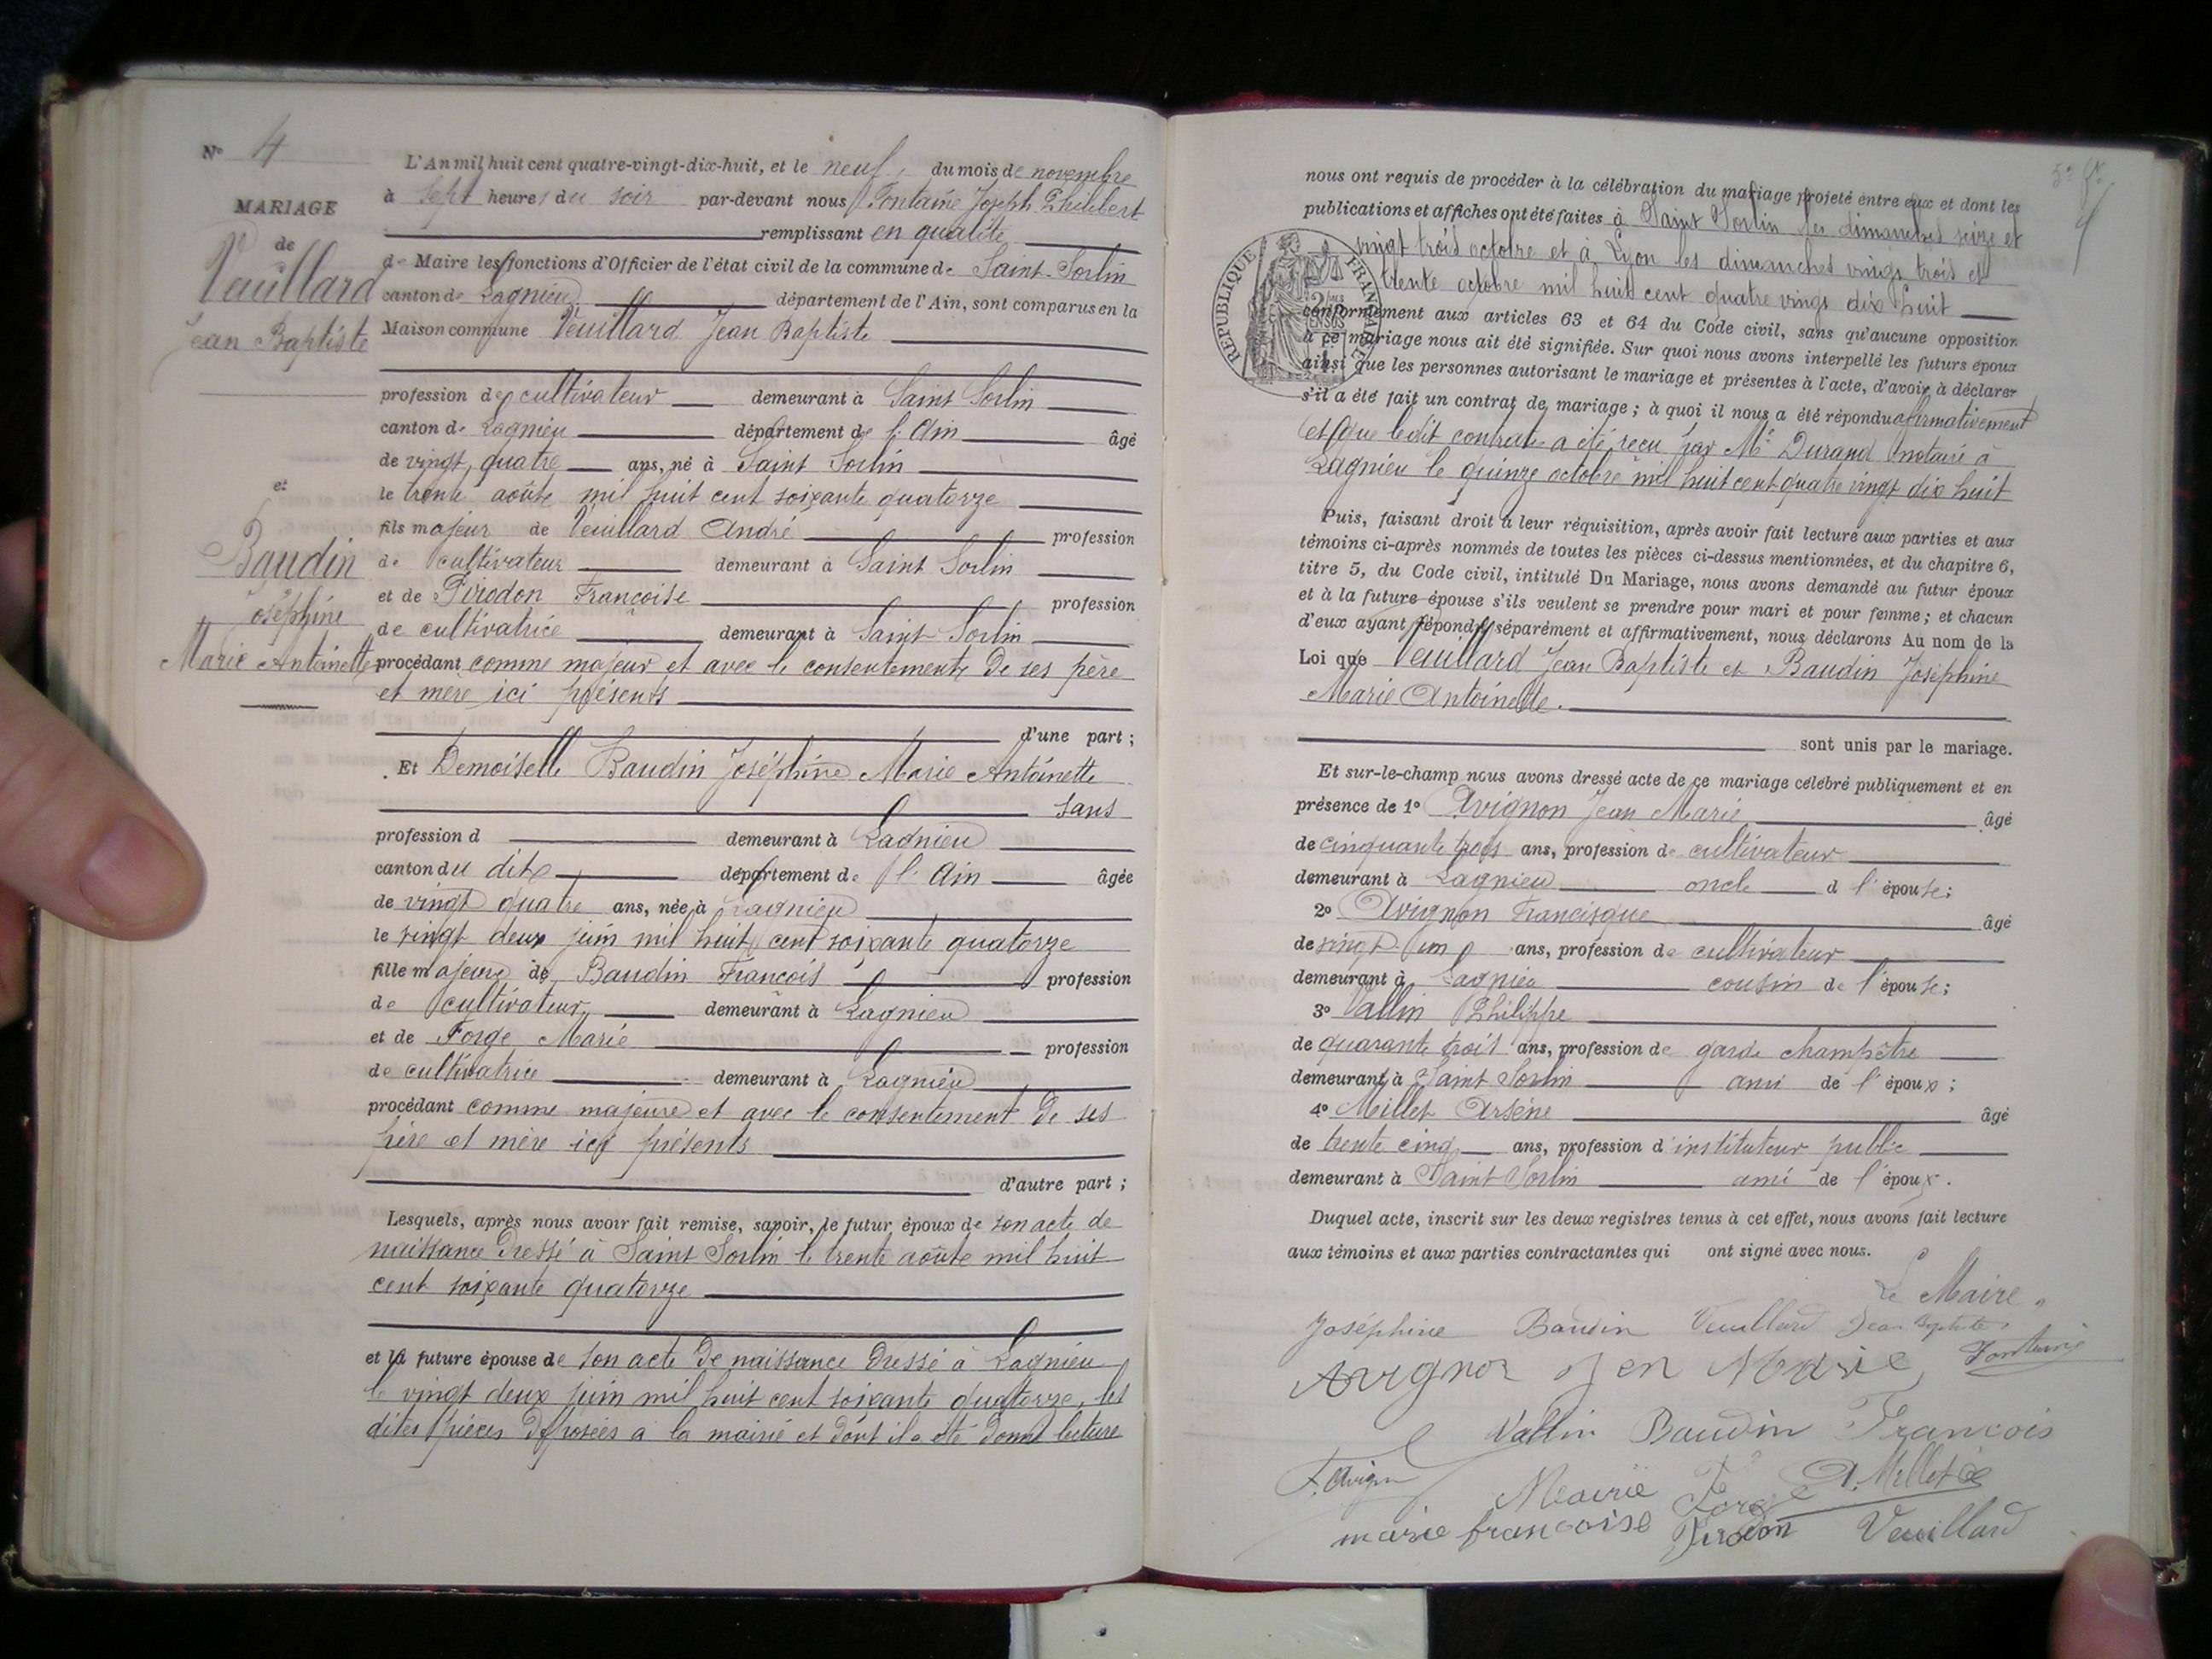 N° 4
MARIAGE
de
Veuillard
Jean Baptiste
et
Baudin
Joséphine
Marie Antoinette
L'An mil huit cent quatre-vingt-dix-huit, et le neuf, du mois de novembre
à sept heures du soir par-devant nous Fontaine Joseph Philibert
remplissant en qualité
de Maire les fonctions d'Officier de l'état civil de la commune de Saint-Sorlin
canton de Lagnieu département de l'Ain, sont comparus en la
Maison commune Veuillard Jean Baptiste
profession de cultivateur demeurant à Saint Sorlin
canton de Lagnieu département de l'Ain âgé
de vingt quatre ans, né à Saint Sorlin
le trente août mil huit cent soixante quatorze
fils majeur de Veuillard André profession
de cultivateur demeurant à Saint Sorlin
et de Pirodon Françoise profession
de cultivatrice demeurant à Saint-Sorlin
procédant comme majeur et avec le consentement de ses père
et mère ici présents
d'une part ;
Et Demoiselle Baudin Joséphine Marie Antoinette
sans
profession d demeurant à Lagnieu
canton du dit département de l'Ain âgée
de vingt quatre ans, née à Lagnieu
le vingt deux juin mil huit cent soixante quatorze
fille majeure de Baudin François profession
de cultivateur demeurant à Lagnieu
et de Forge Marie profession
de cultivatrice demeurant à Lagnieu
procédant comme majeure et avec le consentement de ses
père et mère ici présents
d'autre part ;
Lesquels, après nous avoir fait remise, savoir, le futur époux de son acte de
naissance dressé à Saint Sorlin le trente août mil huit
cent soixante quatorze
et la future épouse de son acte de naissance dressé à Lagnieu
le vingt deux juin mil huit cent soixante quatorze, les
dites pièces déposées a la mairie et dont il a été donné lecture
nous ont requis de procéder à la célébration du mariage projeté entre eux et dont les
publications et affiches ont été faites à Saint Sorlin les dimanches seize et
vingt trois octobre et à Lyon les dimanches vingt trois et
trente octobre mil huit cent quatre vingt dix huit
REPUBLIQUE FRANÇAISE
conformément aux articles 63 et 64 du Code civil, sans qu'aucune opposition
à ce mariage nous ait été signifiée. Sur quoi nous avons interpellé les futurs époux
ainsi que les personnes autorisant le mariage et présentes à l'acte, d'avoir à déclarer
s'il a été fait un contrat de mariage ; à quoi il nous a été répondu afirmativement
et que le dit contrat a été reçu par Me Durand notaire à
Lagnieu le quinze octobre mil huit cent quatre vingt dix huit
Puis, faisant droit à leur réquisition, après avoir fait lecture aux parties et aux
témoins ci-après nommés de toutes les pièces ci-dessus mentionnées, et du chapitre 6,
titre 5, du Code civil, intitulé Du Mariage, nous avons demandé au futur époux
et à la future épouse s'ils veulent se prendre pour mari et pour femme ; et chacun
d'eux ayant répondu séparément et affirmativement, nous déclarons Au nom de la
Loi que Veuillard Jean Baptiste et Baudin Joséphine
Marie Antoinette.
sont unis par le mariage.
Et sur-le-champ nous avons dressé acte de ce mariage célébré publiquement et en
présence de 1° Avignon Jean Marie âgé
de cinquante trois ans, profession de cultivateur
demeurant à Lagnieu oncle d l'épouse ;
2° Avignon Francisque âgé
de vingt un ans, profession de cultivateur
demeurant à Lagnieu cousin de l'épouse ;
3° Vallin Philippe
de quarante trois ans, profession de garde champêtre
demeurant à Saint Sorlin ami de l'époux ;
4° Millet Arsène âgé
de trente cinq ans, profession d'instituteur public
demeurant à Saint Sorlin ami de l'époux.
Duquel acte, inscrit sur les deux registres tenus à cet effet, nous avons fait lecture
aux témoins et aux parties contractantes qui ont signé avec nous.
Le Maire,
Joséphine Baudin Veuillard Jean Baptiste
Fontaine
Avignon Jen Marie
Vallin Baudin François
F. Avignon
Marie Forge A. Millet
marie françoise Pirodon Veuillard